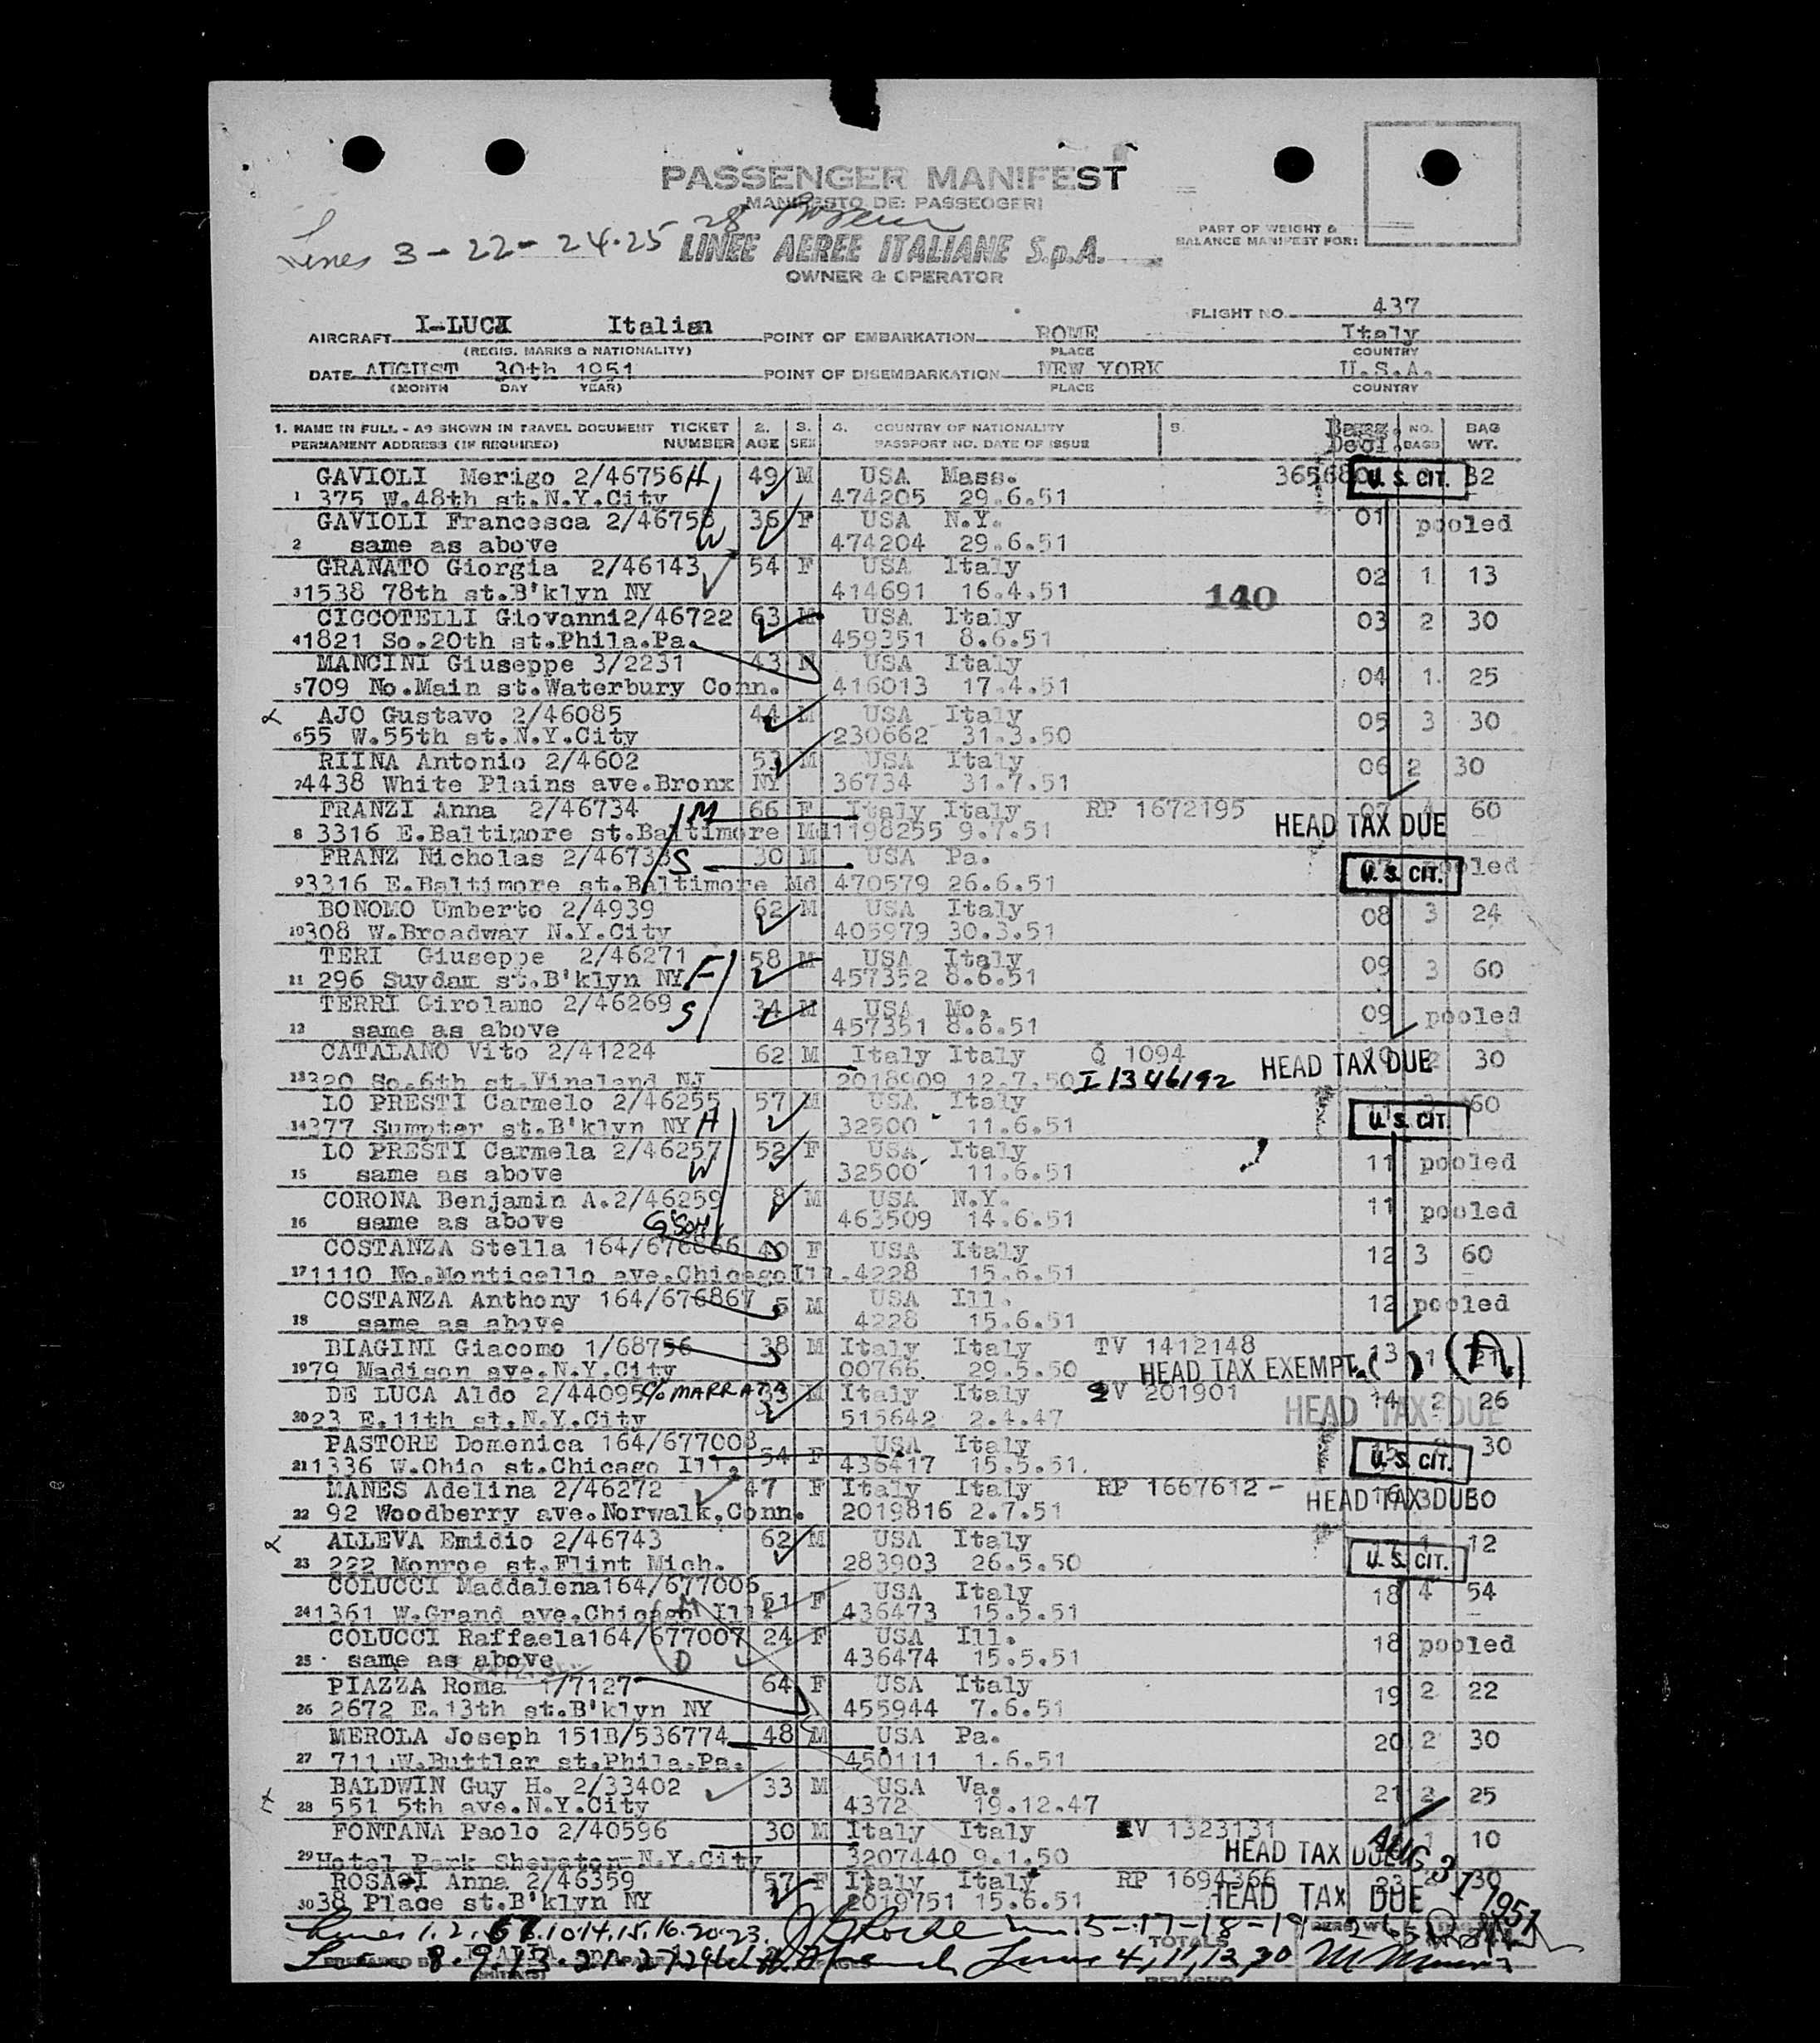 PASSENGER MANIFEST
MANIFESTO DE: PASSEOGERI
Lines 3-22-24.25 28
LINEE AEREE ITALIANE S.p.A.
OWNER & OPERATOR
PART OF WEIGHT &
BALANCE MANIFEST FOR:
FLIGHT NO. 437
AIRCRAFT Italian POINT OF EMBARKATION ROME Italy
(REGIS. MARKS & NATIONALITY) PLACE COUNTRY
DATE AUGUST 30th 1951 POINT OF DISEMBARKATION NEW YORK U.S.A.
(MONTH DAY YEAR) PLACE COUNTRY
1. NAME IN FULL - AS SHOWN IN TRAVEL DOCUMENT TICKET 2. 3. 4. COUNTRY OF NATIONALITY 5. NO. BAG
PERMANENT ADDRESS (IF REQUIRED) NUMBER AGE SEX PASSPORT NO. DATE OF ISSUE BAGS WT.
GAVIOLI Merigo 2/46756 H 49 M USA Mass. U. S. CIT. 32
1 375 W.48th st.N.Y.City 474205 29.6.51
GAVIOLI Francesca 2/46758 W 36 F USA N.Y. 01 pooled
2 same as above 474204 29.6.51
GRANATO Giorgia 2/46143 54 F USA Italy 02 1 13
3 1538 78th st.B'klyn NY 414691 16.4.51 140
CICCOTELLI Giovanni2/46722 63 M USA Italy 03 2 30
4 1821 So.20th st.Phila.Pa. 459351 8.6.51
MANCINI Giuseppe 3/2231 43 M USA Italy 04 1. 25
5 709 No.Main st.Waterbury Conn. 416013 17.4.51
AJO Gustavo 2/46085 44 M USA Italy 05 3 30
6 55 W.55th st.N.Y.City 230662 31.3.50
RIINA Antonio 2/4602 53 M USA Italy 06 2 30
7 4438 White Plains ave.Bronx NY 36734 31.7.51
FRANZI Anna 2/46734 M 66 F Italy Italy RP 1672195 07 4 60
8 3316 E.Baltimore st.Baltimore Md 1198255 9.7.51 HEAD TAX DUE
FRANZ Nicholas 2/46733 S 30 M USA Pa. 07 pooled
9 3316 E.Baltimore st.Baltimore Md 470579 26.6.51 U. S. CIT.
BONOMO Umberto 2/4939 62 M USA Italy 08 3 24
10 308 W.Broadway N.Y.City 405979 30.3.51
TERI Giuseppe 2/46271 F 58 M USA Italy 09 3 60
11 296 Suydam st.B'klyn NY 457352 8.6.51
TERRI Girolamo 2/46269 S 34 M USA Mo. 09 pooled
12 same as above 457351 8.6.51
CATALANO Vito 2/41224 62 M Italy Italy Q 1094 HEAD TAX DUE 30
13 320 So.6th st.Vineland NJ 2018909 12.7.50 I 1346192
LO PRESTI Carmelo 2/46255 57 M USA Italy 60
14 377 Sumpter st.B'klyn NY H 32500 11.6.51 U. S. CIT.
LO PRESTI Carmela 2/46257 W 52 F USA Italy 11 pooled
15 same as above 32500 11.6.51
CORONA Benjamin A.2/46259 8 M USA N.Y. 11 pooled
16 same as above G'SON 463509 14.6.51
COSTANZA Stella 164/676866 40 F USA Italy 12 3 60
17 1110 No.Monticello ave.Chicago Ill. 4228 15.6.51
COSTANZA Anthony 164/676867 5 M USA Ill. 12 pooled
18 same as above 4228 15.6.51
BIAGINI Giacomo 1/68756 38 M Italy Italy TV 1412148 13 1 21
19 79 Madison ave.N.Y.City 00766 29.5.50 HEAD TAX EXEMPT. ( )
DE LUCA Aldo 2/44095 c/o MARRATA 33 M Italy Italy 2V 201901 14 2 26
20 23 E.11th st.N.Y.City 515642 2.4.47 HEAD TAX DUE
PASTORE Domenica 164/677008 54 F USA Italy 30
21 1336 W.Ohio st.Chicago Ill. 436417 15.5.51. U. S. CIT.
MANES Adelina 2/46272 47 F Italy Italy RP 1667612 - HEAD TAX DUE
22 92 Woodberry ave.Norwalk,Conn. 2019816 2.7.51
ALLEVA Emidio 2/46743 62 M USA Italy 1 12
23 222 Monroe st.Flint Mich. 283903 26.5.50 U. S. CIT.
COLUCCI Maddalena164/677006 51 F USA Italy 18 4 54
24 1361 W.Grand ave.Chicago Ill. M 436473 15.5.51
COLUCCI Raffaela164/677007 24 F USA Ill. 18 pooled
25 same as above D 436474 15.5.51
PIAZZA Roma 1/7127 64 F USA Italy 19 2 22
26 2672 E.13th st.B'klyn NY 455944 7.6.51
MEROLA Joseph 151B/536774 48 M USA Pa. 20 2 30
27 711 W.Buttler st.Phila.Pa. 450111 1.6.51
BALDWIN Guy H. 2/33402 33 M USA Va. 21 2 25
28 551 5th ave.N.Y.City 4372 19.12.47
FONTANA Paolo 2/40596 30 M Italy Italy 1323131 1 10
29 Hotel Park Sheraton-N.Y.City 3207440 9.1.50 HEAD TAX DUE
ROSACI Anna 2/46359 57 F Italy Italy RP 1694366 30
30 38 Place st.B'klyn NY 2019751 15.6.51 HEAD TAX DUE
AUG 31 1951
Lines 1.2.67.10 14.15.16.20.23.
TOTALS
Lines 4,11,12,30